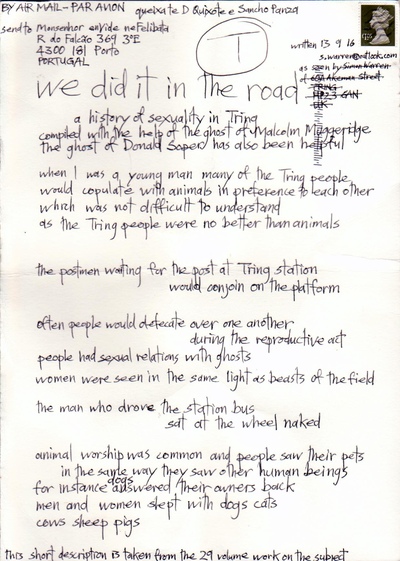 BY AIR MAIL - PAR AVION
queixate D Quixote e Sancho Panza
send to Monsenhor enVide neFelibata
R do Falcão 369 3ºE
4300 181 Porto
PORTUGAL
T
written 13 9 16
s.warren@outlook.com
as seen by Simon Warren
at 69A Akeman Street
TRING
HP23 6AN
UK
we did it in the road
a history of sexuality in Tring
compiled with the help of the ghost of Malcolm Muggeridge
the ghost of Donald Soper has also been helpful
when I was a young man many of the Tring people
would copulate with animals in preference to each other
which was not difficult to understand
as the Tring people were no better than animals
the postmen waiting for the post at Tring station
would conjoin on the platform
often people would defecate over one another
during the reproductive act
people had sexual relations with ghosts
women were seen in the same light as beasts of the field
the man who drove the station bus
sat at the wheel naked
animal worship was common and people saw their pets
in the same way they saw other human beings
for instance dogs answered their owners back
men and women slept with dogs cats
cows sheep pigs
this short description is taken from the 29 volume work on the subject